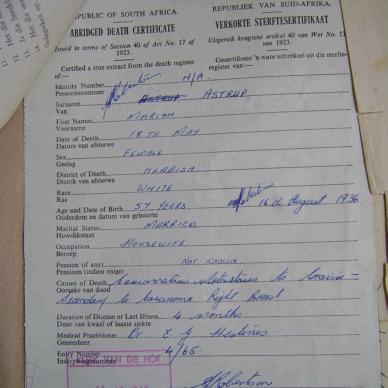 REPUBLIC OF SOUTH AFRICA.
REPUBLIEK VAN SUID-AFRIKA.
ABRIDGED DEATH CERTIFICATE
VERKORTE STERFTESERTIFIKAAT
Issued in terms of Section 40 of Act No. 17 of 1923.
Uitgereik kragtens artikel 40 van Wet No. 17 van 1923.
Certified a true extract from the death register of:—
Gesertifiseer 'n ware uittreksel uit die sterfteregister van:—
Identity Number N/A
Persoonsnommer
Surname ASTRUP ASTRUP
Van
First Names MARION
Voorname
Date of Death 18TH MAY
Datum van afsterwe
Sex FEMALE
Geslag
District of Death
Distrik van afsterwe
Race WHITE
Ras
Age and Date of Birth 57 YEARS 16th August 1936
Ouderdom en datum van geboorte
Marital Status MARRIED
Huwelikstaat
Occupation HOUSEWIFE
Beroep
Pension (if any) NOT KNOWN
Pensioen (indien enige)
Causes of Death Carcinomatous Metastases to brain -
Oorsake van dood
Secondary to Carcinoma Right Breast
Duration of Disease or Last Illness 4 months
Duur van kwaal of laaste siekte
Medical Practitioner Dr E G
Geneesheer
Entry Number 4/65
Inskrywingsnommer
VAN DIE HOF
Robertson